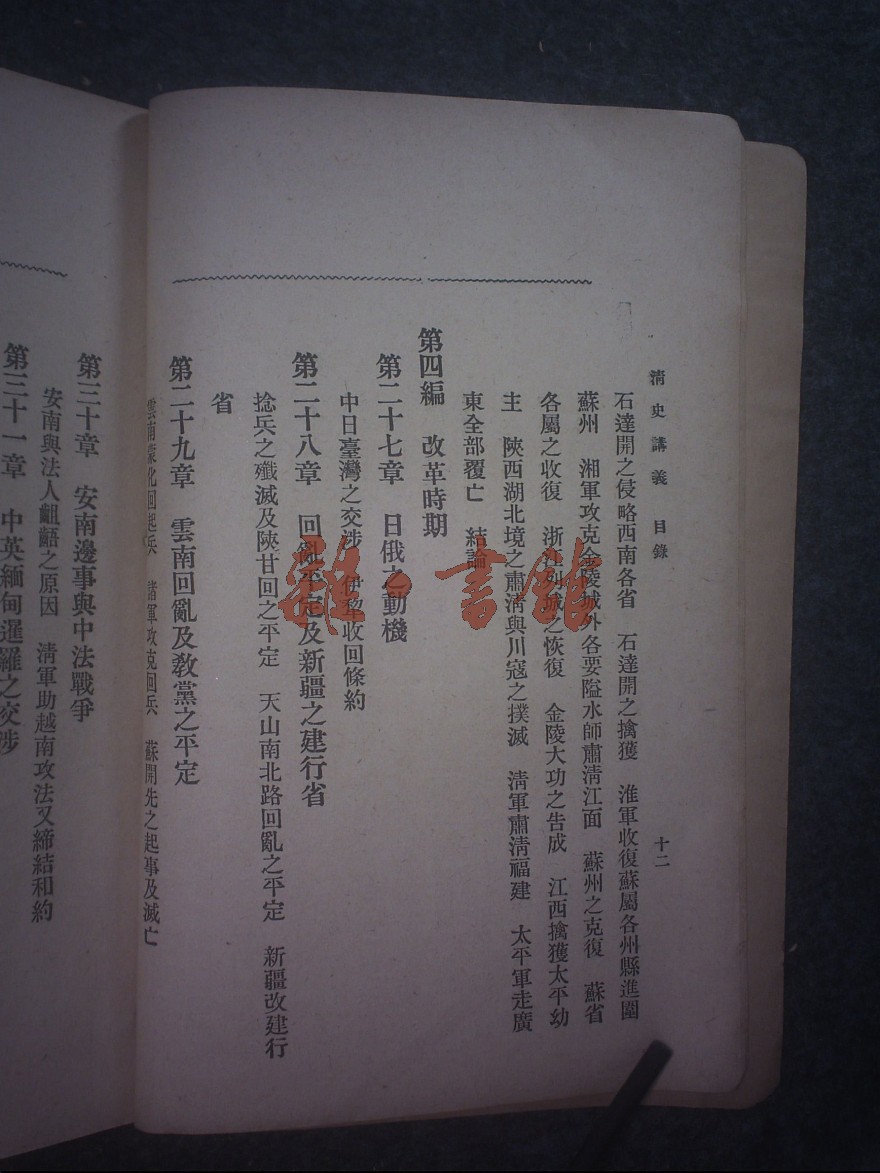 清史講義 目錄 十二
石達開之侵略西南各省 石達開之擒獲 淮軍收復蘇屬各州縣進圍
蘇州 湘軍攻克金陵城外各要隘水師肅清江面 蘇州之克復 蘇省
各屬之收復 浙江列城之恢復 金陵大功之告成 江西擒獲太平幼
主 陝西湖北境之肅清與川寇之撲滅 清軍肅清福建 太平軍走廣
東全部覆亡 結論
第四編 改革時期
第二十七章 日俄之動機
中日臺灣之交涉 伊犂收回條約
第二十八章 回亂平定及新疆之建行省
捻兵之殲滅及陝甘回之平定 天山南北路回亂之平定 新疆改建行
省
第二十九章 雲南回亂及教黨之平定
雲南蒙化回起兵 諸軍攻克回兵 蘇開先之起事及滅亡
第三十章 安南邊事與中法戰爭
安南與法人齟齬之原因 清軍助越南攻法又締結和約
第三十一章 中英緬甸暹羅之交涉
雜·書館